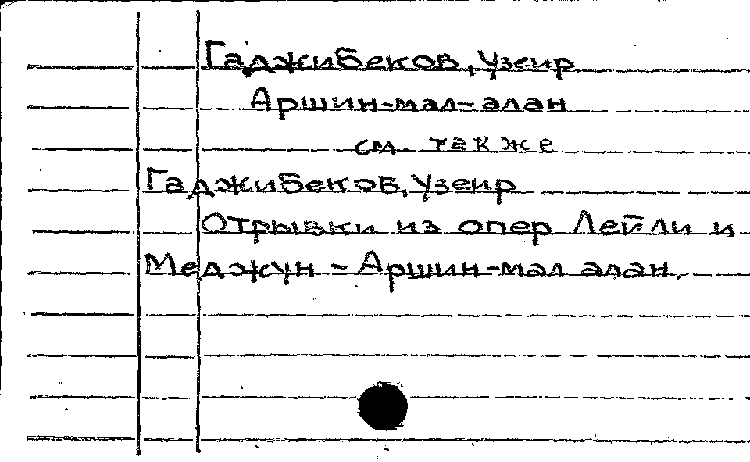 Гаджибеков, Узеир
Аршин-мал-алан
см также
Гаджибеков, Узеир
Отрывки из опер Лейли и
Меджун - Аршин-мал алан.